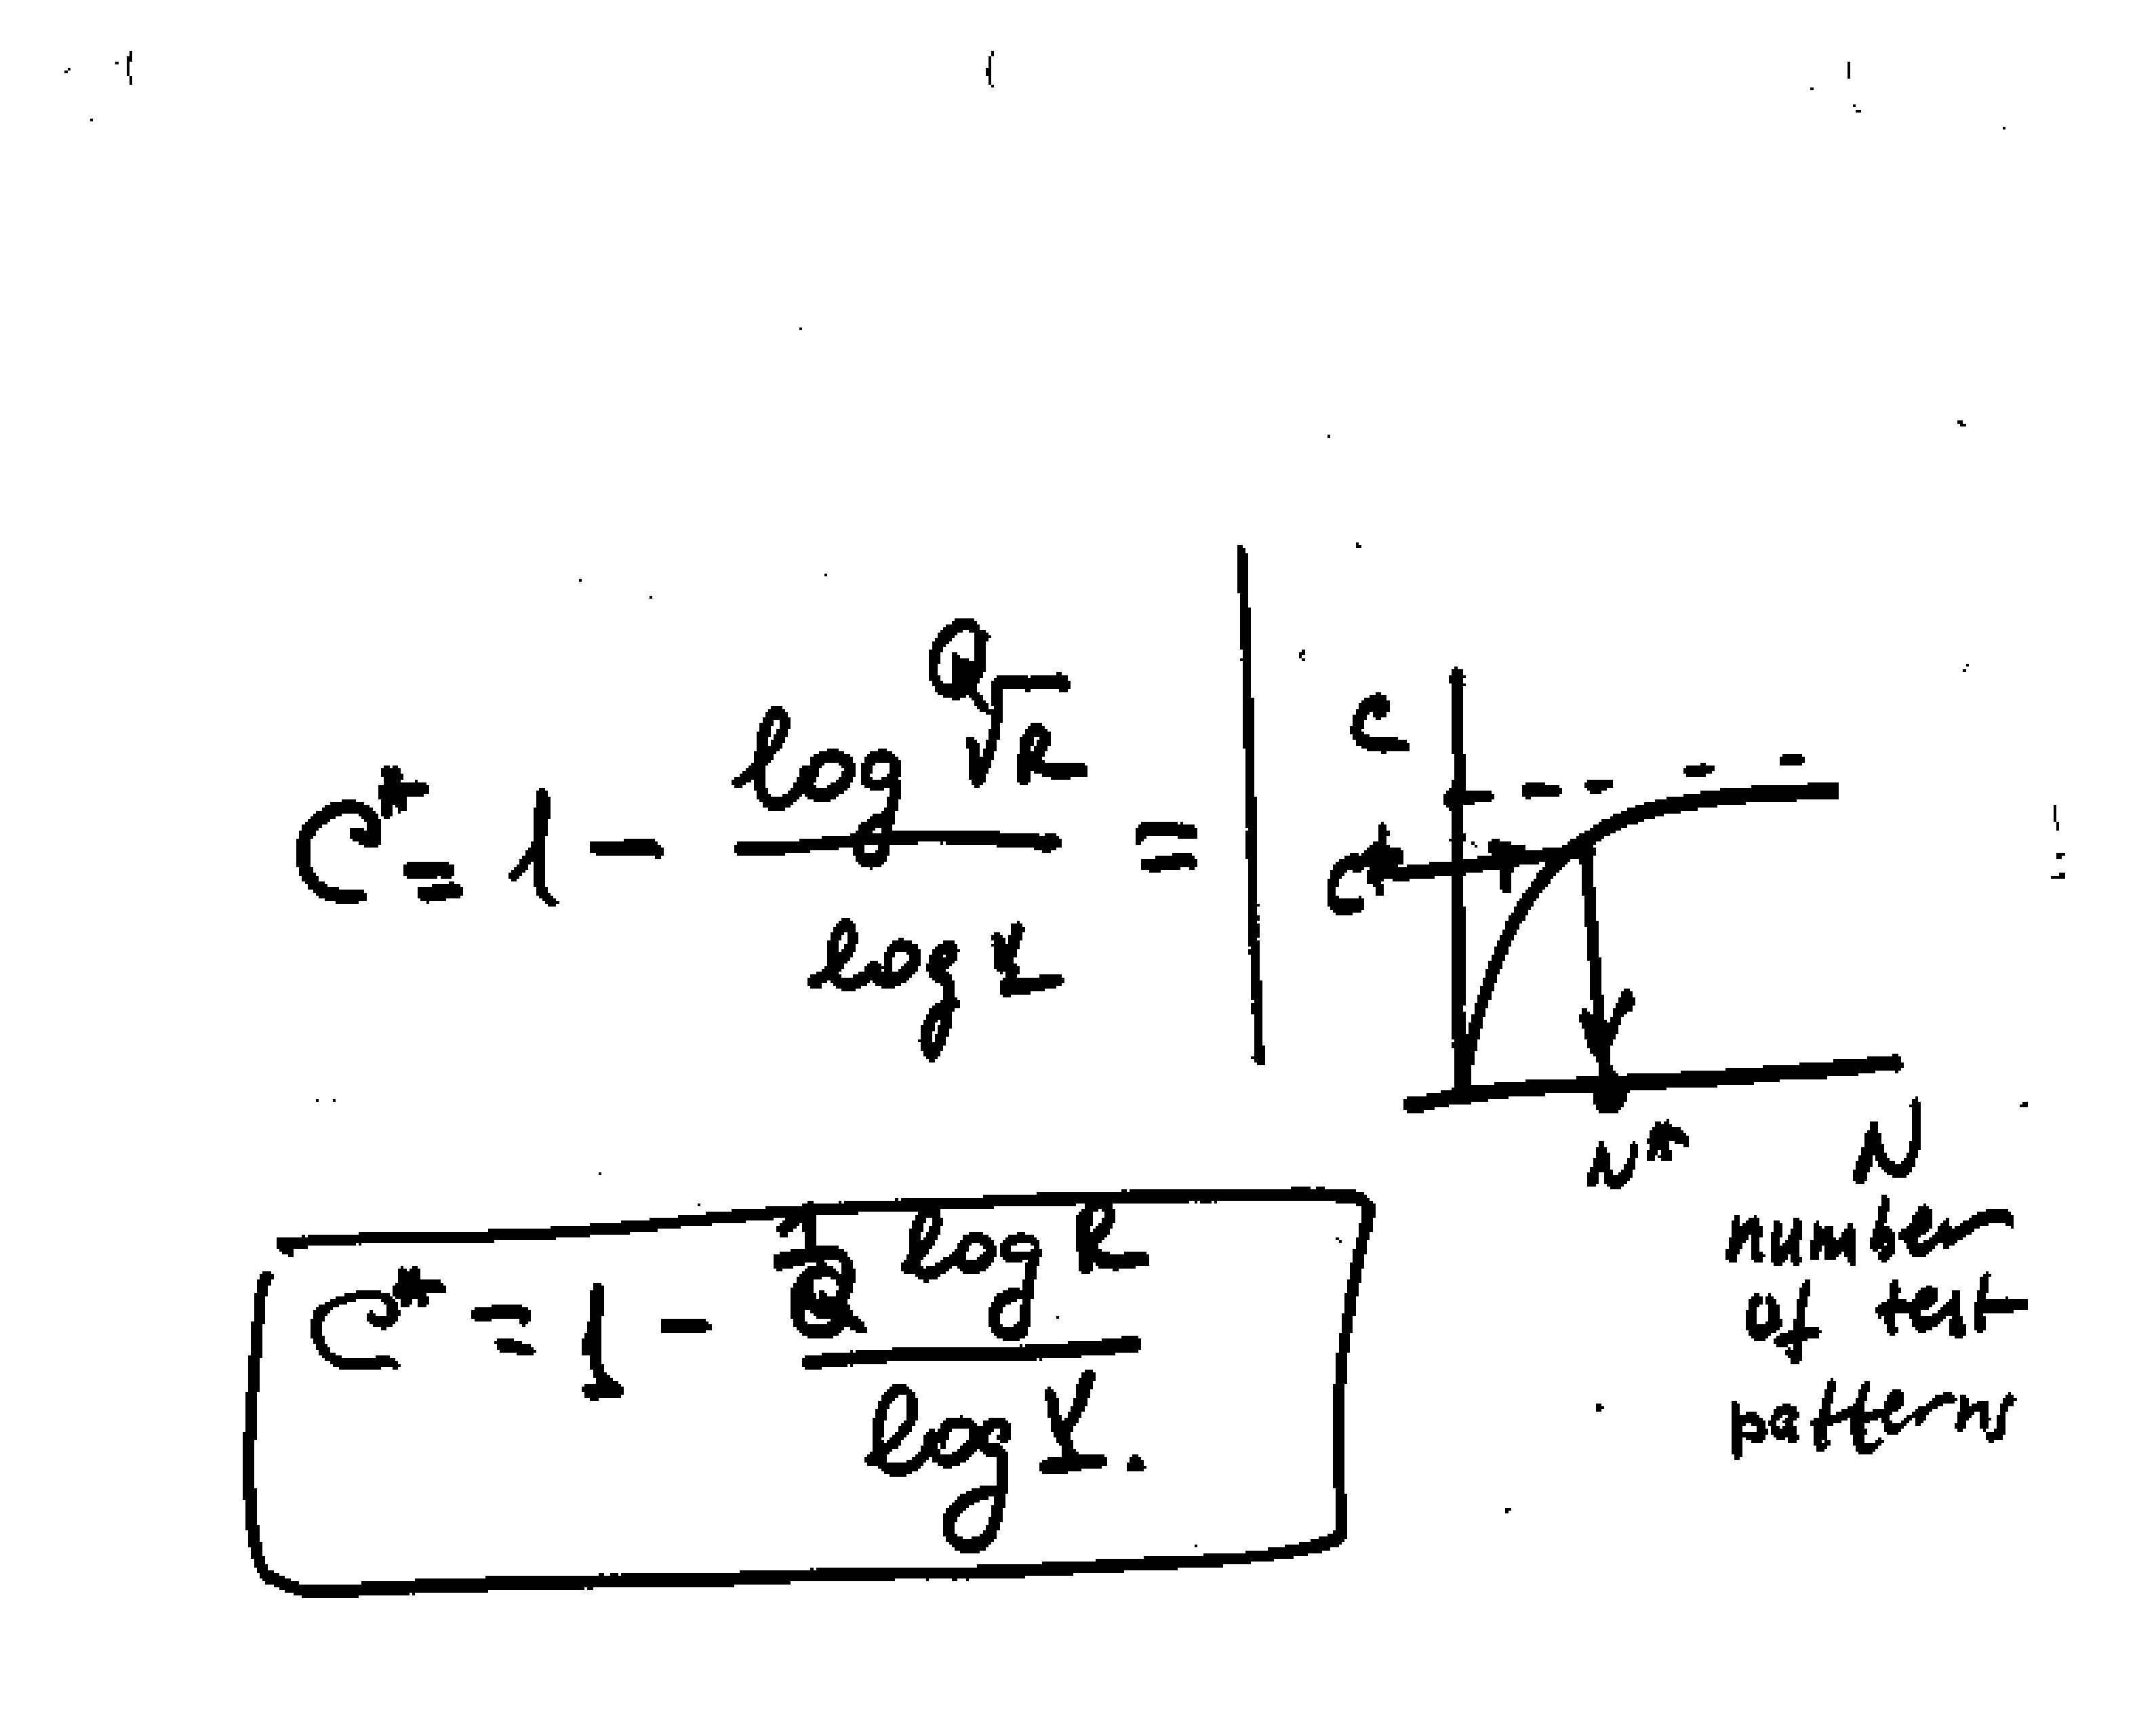 C* = 1 - log Q√R / log Y =
C
C*
N* N
number
of test
patterns
C* = 1 - 1/Q log R / log Y.